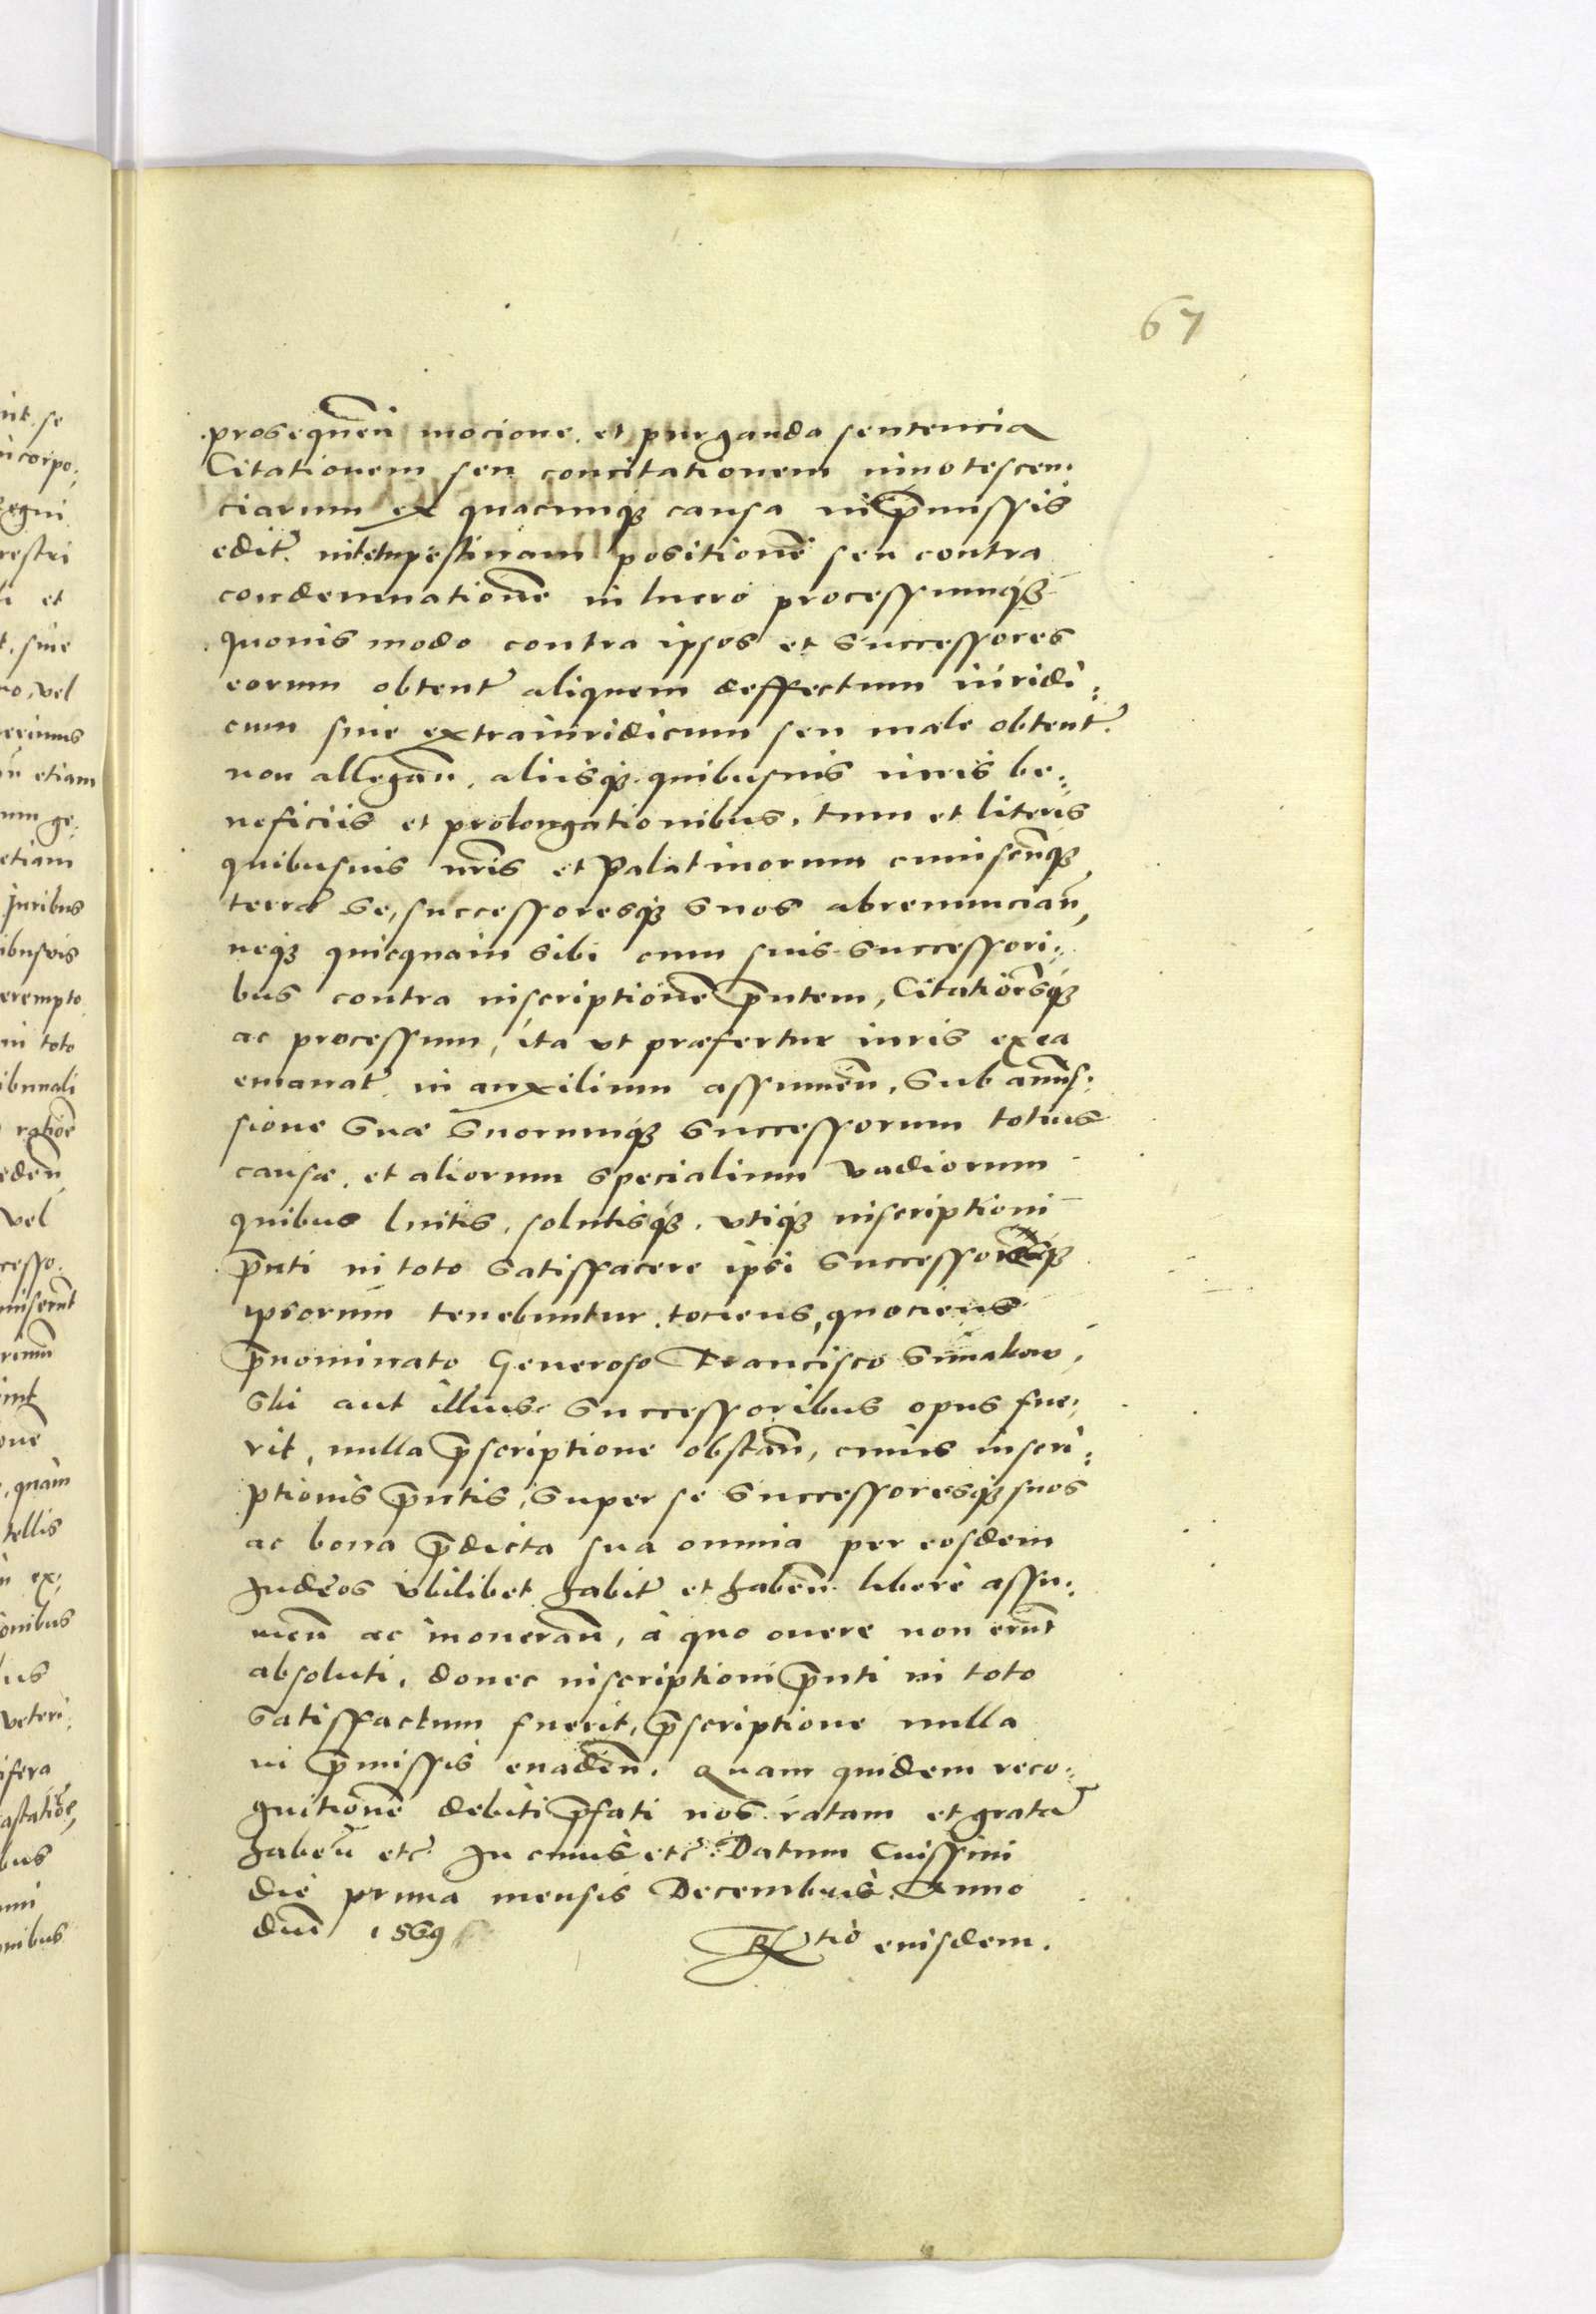 67
prosequen̄ mocione. et purganda sentencia
Citationem seu concitationem innotescen.
ciarum ex quacunq; causa in p̄missis
edit̄. intetmpestinam positionē seu contra
condemnationē in lucro processumq́;
quouis modo contra ipsos et successores
eorum obtent̄ aliquem deffectum iuridi:
cum siue extraiuridicum seu male obtent̄.
non allegan̄. aliisq́; quibusuis iuris be:
neficiis et prolongationibus. tum et literis
quibusuis nr̄is et Palatinorum cuiuscunq;
terræ se, successoresq́; suos abrenuncian̄,
neq; quicquam sibi cum suis successori:
bus contra inscriptionē p̄ntem, Citatiōesq́;
ac processum, ita vt præfertur iuris ex ea
emanat̄. in auxilium assumen̄. sub amis:
sione suæ suorumq́; successorum totius
causæ. et aliorum specialium vadiorum
quibus luitis, solutisq́;. vtiq́; inscriptioni
p̄nti in toto satisfacere ipsi successoresq́;
ipsorum tenebuntur. tociens, quociens
p̄nominato Generoso Francisco
ski aut illius successoribus opus fue:
rit, nulla p̄scriptione obstan̄, onus inscri:
ptionis p̄ntis, super se successoresq́; suos
ac bona p̄dicta sua omnia per eosdem
Judeos vbilibet habit̄ et haben̄ liberè assu:
men̄ ac inoneran̄, à quo onere non erūt
absoluti, donec inscriptioni p̄nti in toto
satisfactum fuerit, p̄scriptione nulla
in p̄missis euaden̄. Quam quidem reco:
gnitionē debiti p̄fati nos ratam et gratā
haben̄ etc̄ In cuius etc̄. Datum Cnissini
die prima mensis Decembris. Anno
dn̄i 1569
R̄tio eiusdem.